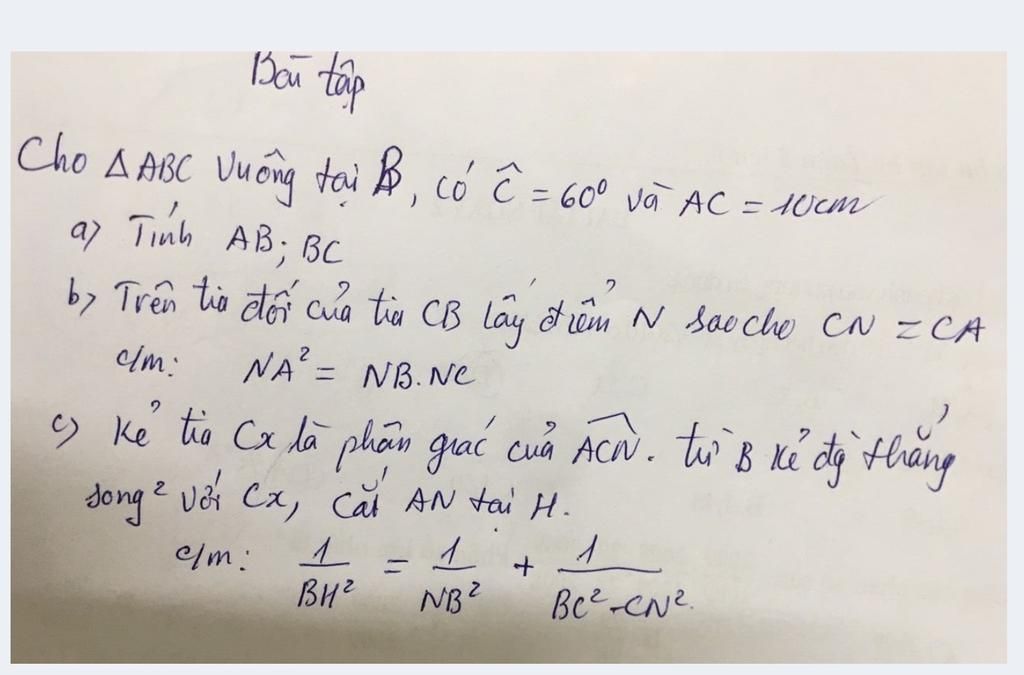 Bài tập
Cho ΔABC vuông tại B, có Ĉ = 60⁰ và AC = 10cm
a) Tính AB; BC
b) Trên tia đối của tia CB lấy điểm N sao cho CN = CA
c/m: NA² = NB.NC
c) Kẻ tia Cx là phân giác của \widehat{ACN}. Từ B kẻ đg̀ thẳng
song² với Cx, cắt AN tại H.
c/m: 1/BH² = 1/NB² + 1/(BC²-CN²).